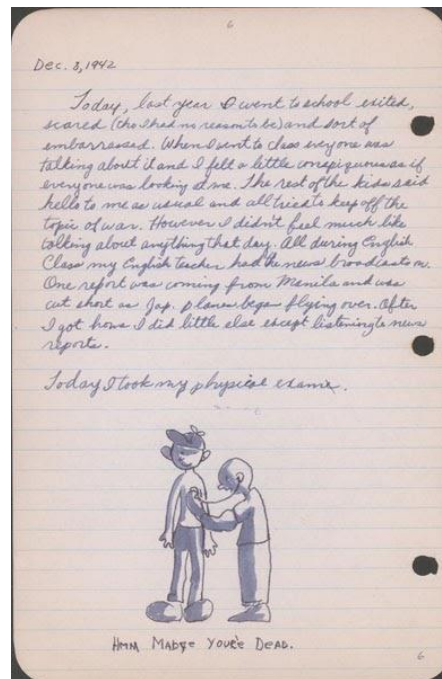 6
Dec. 8, 1942
Today, last year I went to school exited,
scared (tho I had no reason to be) and sort of
embarrassed. When I went to class everyone was
talking about it and I felt a little conspiquous as if
everyone was looking at me. The rest of the kids said
hello to me as usual and all tried to keep off the
topic of war. However I didn't feel much like
talking about anything that day. All during English
Class my English teacher had the news broadcasts on.
One report was coming from Manila and was
cut short as Jap. planes began flying over. After
I got home I did little else except listening to news
reports.
Today I took my physical exame.
HMM MABYE YOU'RE DEAD.
6